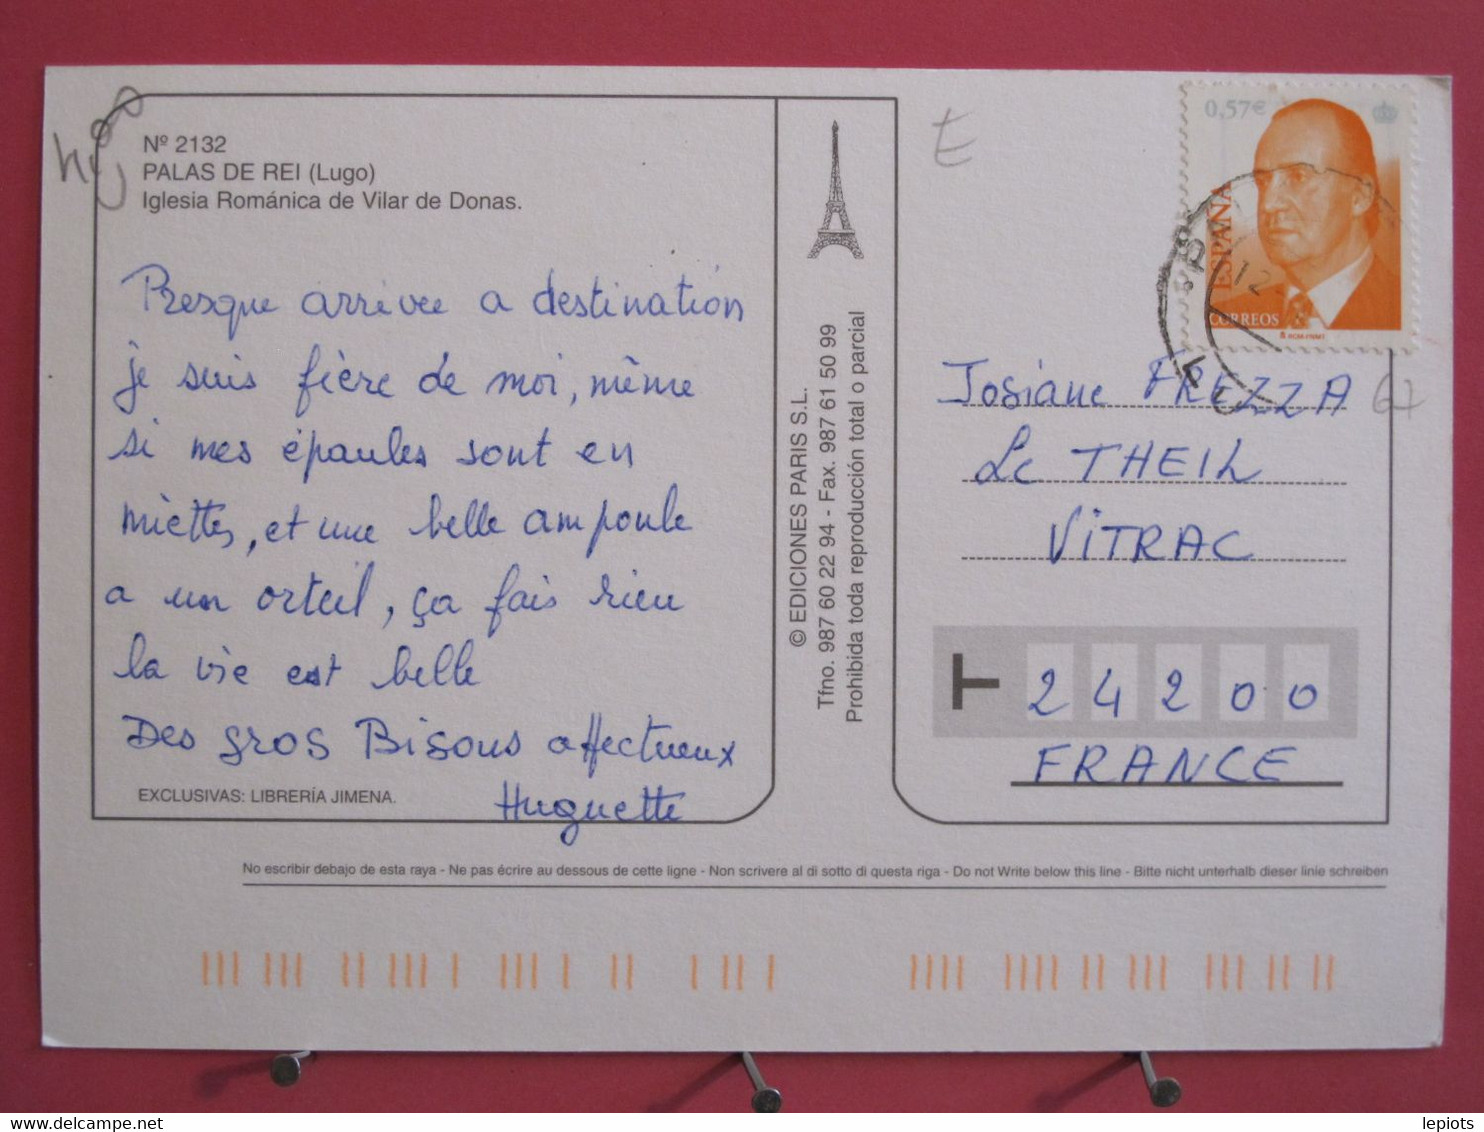 Nº 2132
PALAS DE REI (Lugo)
Iglesia Románica de Vilar de Donas.
Presque arrivee a destination
je suis fière de moi, même
si mes épaules sont en
miettes, et une belle ampoule
a un orteil, ça fais rien
la vie est belle
Des gros Bisous affectueux
Huguette
EXCLUSIVAS: LIBRERÍA JIMENA.
© EDICIONES PARIS S.L.
Tfno. 987 60 22 94 - Fax. 987 61 50 99
Prohibida toda reproducción total o parcial
E
0,57€
ESPAÑA
CORREOS
RCM-FNMT
12
Josiane FREZZA
67
Le THEIL
VITRAC
T 24200
FRANCE
No escribir debajo de esta raya - Ne pas écrire au dessous de cette ligne - Non scrivere al di sotto di questa riga - Do not Write below this line - Bitte nicht unterhalb dieser linie schreiben
lepiots